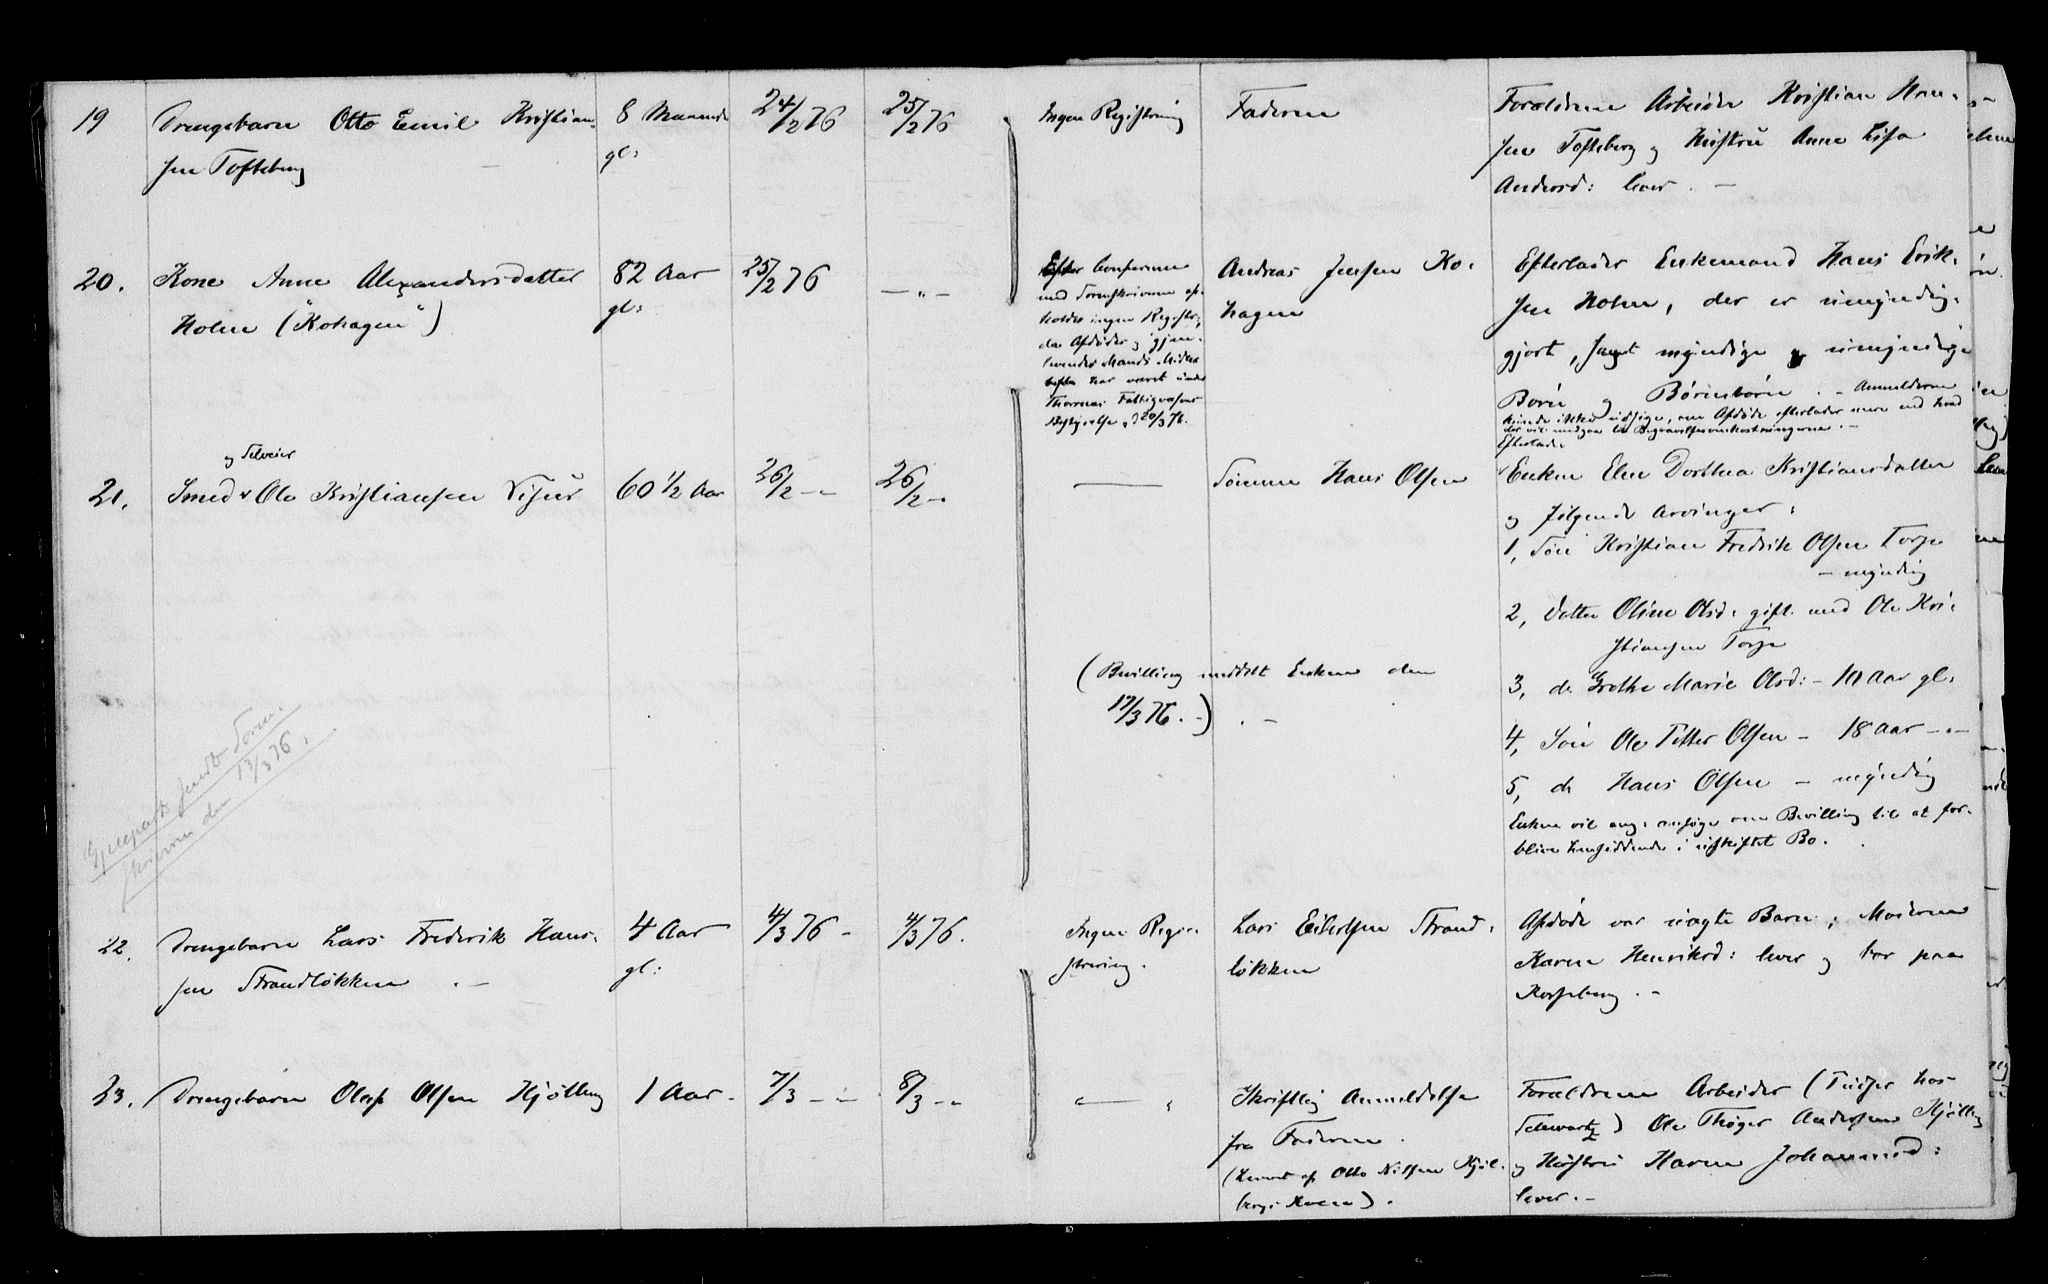 19
Drengebarn Otto Emil Kristian-
sen Tofteberg
8 Maaneder
gl:
24/2 76
25/2 76
Ingen Registrering
Faderen
Forældrene Arbeider Kristian Han-
sen Tofteberg og Hustru Anne Lisa
Andersd: lever. —
20.
Kone Anne Alexandersdatter
Holm ("Kohagen")
82 Aar
gl:
25/2 76
— „ —
Efter Conference
med Sorenskriveren af-
holdes ingen Registr:,
da Afdødes og gjen-
levendes Mands Midler
har været under
Fattigvæsens
Bestyrelse, d 20/3 76.
Andreas Jensen Ko-
hagen
Efterlader Enkemand Hans Erik-
sen Holm, der er umyndig-
gjort, samt myndige og umyndige
Børn og Børnebørn. — Anmelderen
kunde ikke udsige, om Afdøde efterlader mere end hvad
der vil medgaa til Begravelsesomkostningerne. —
Efterlader
21.
og Selveier
Smed Ole Kristiansen Visur
60 1/2 Aar
26/2 — „
26/2 — „
——
Sønnen Hans Olsen
Enken Elen Dorthea Kristiansdatter
og følgende Arvinger:
1, Søn Kristian Fredrik Olsen Torp
— myndig
2, Datter Oline Olsd: gift med Ole Kri-
stiansen Torp
3, do Grethe Marie Olsd: — Aar gl:
4, Søn Ole Petter Olsen — 18 Aar — „ —
5, do Hans Olsen — myndig
Enken vil ansøge om Bevilling til at for-
blive hensiddende i uskiftet Bo.
(Bevilling meddelt Enken den
17/3 76. —) . —
Gjenpart sendt Soren-
skriveren den 13/3 76.
22.
Drengebarn Lars Frederik Hans-
sen Strandløkken . —
4 Aar
gl:
4/3 76 —
4/3 76.
Ingen Regi-
strering.
Lars Eilertsen Strand-
løkken
Afdøde var uægte Barn; Moderen
Karen Henriksd: lever og bor paa
Korsberg. —
23.
Drengebarn Olaf Olsen Kjølberg
1 Aar.
7/3 — „
8/3 — „
— „
Skriftlig Anmeldelse
fra Faderen.
(levert af Otto Nilsen Kjøl-
berg).
Forældrene Arbeider (Tjener hos
Schwartz) Ole Thøger Andersen Kjølberg
og Hustru Karen Johannesd:
lever. —